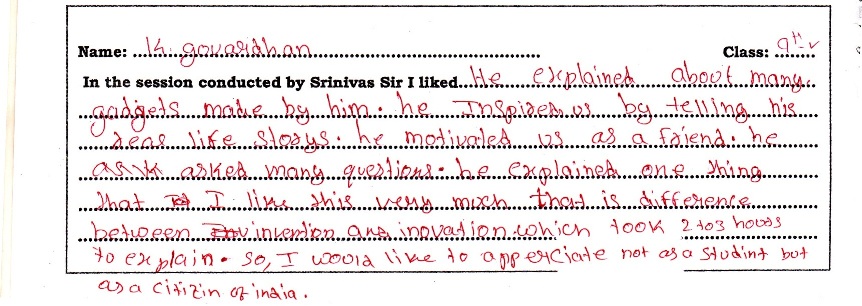 Name: K. govardhan Class: 9th v
In the session conducted by Srinivas Sir I liked. He explained about many
gadgets made by him. he Inspired us by telling his
reas life storys. he motivated us as a friend. he
asked many questions. he explained one thing
that I like this very much that is difference
between invention and inovation which took 2 to 3 hours
to explain. so, I would like to apperciate not as a student but
as a citizin of india.